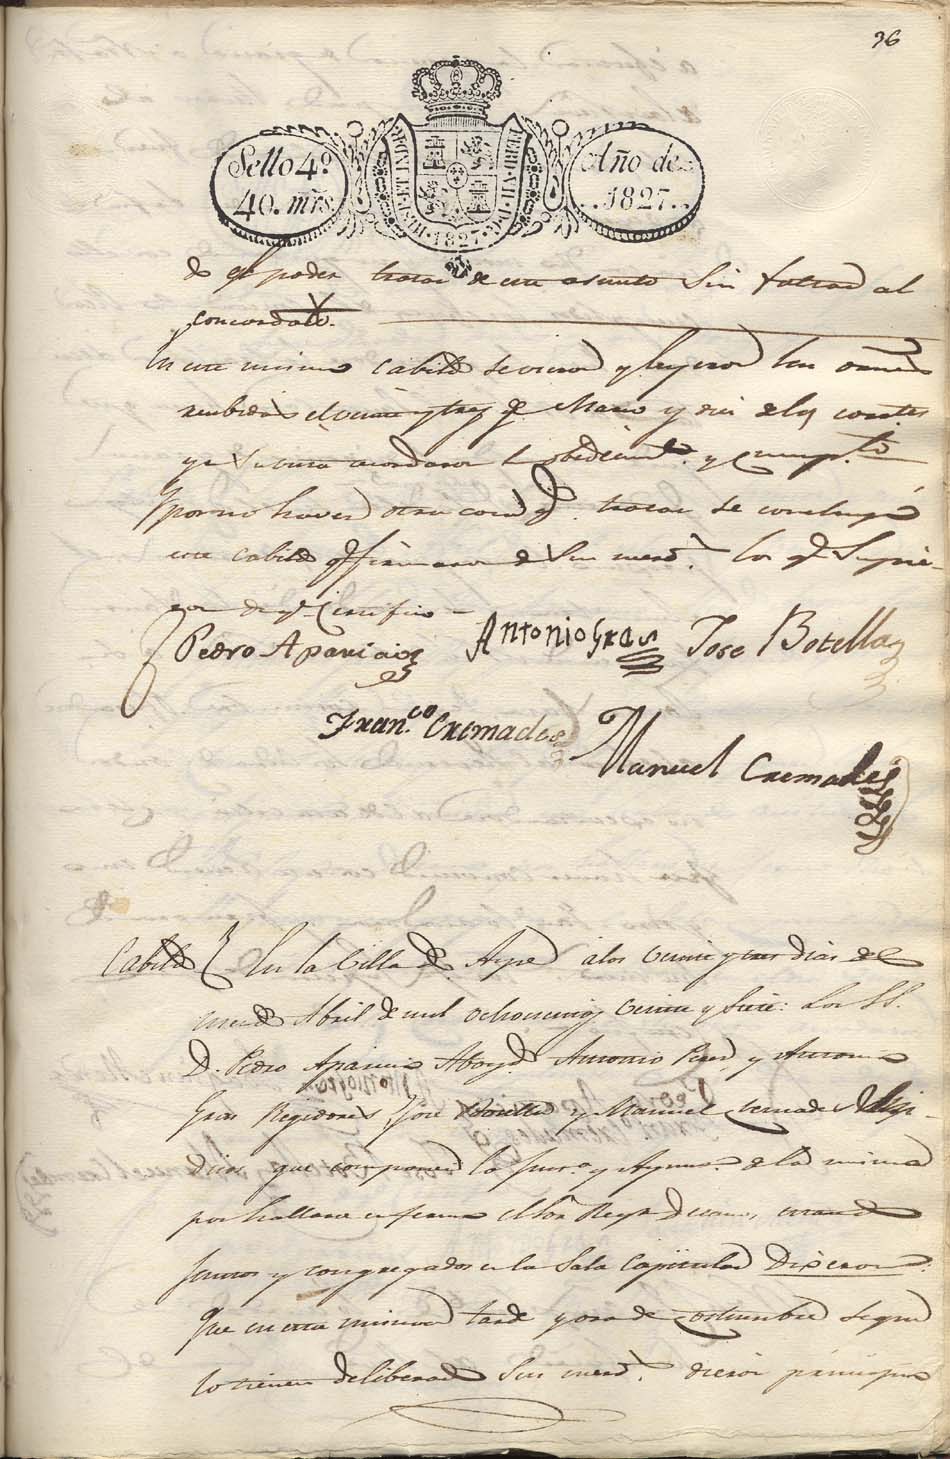 96
Sello 4º.
40. mrs
HISP. ET IND. R. 1827. FERD. VII. D. G.
Año de
1827.
de qe poder tratar de este asunto sin faltar al
concordato.
En este mismo Cabildo se vieron y leyeron las ordenes
recibidas el veinte y tres de Marzo y diez de los corrtes
y en su vista acordaron el obedecimto. y cumplto
Y por no haver otra cosa qe. tratar se concluyó
este Cabildo qe firmaron de Sus mercs. los qe Supie-
ron de qe. Certifico =
Pedro Aparicio Antonio Gras Jose Botella
Fran.co Cremades
Manuel Cremades
Cabildo En la Villa de Aspe a los veinte y tres dias del
mes de Abril de mil ochocientos veinte y siete: Los SS.
D. Pedro Aparicio Abogd. Antonio y Antonio
Gras Regidores, Jose Botella y Manuel Cremades
Dios que componen la Justa. y Aynto. de la misma
por hallarse enfermo el Sor Regr Decano, estando
juntos y congregados en la Sala Capitular Dixeron:
Que en esta misma tarde y ora de costumbre segun
lo tienen deliberado Sus mercs. dieron principio